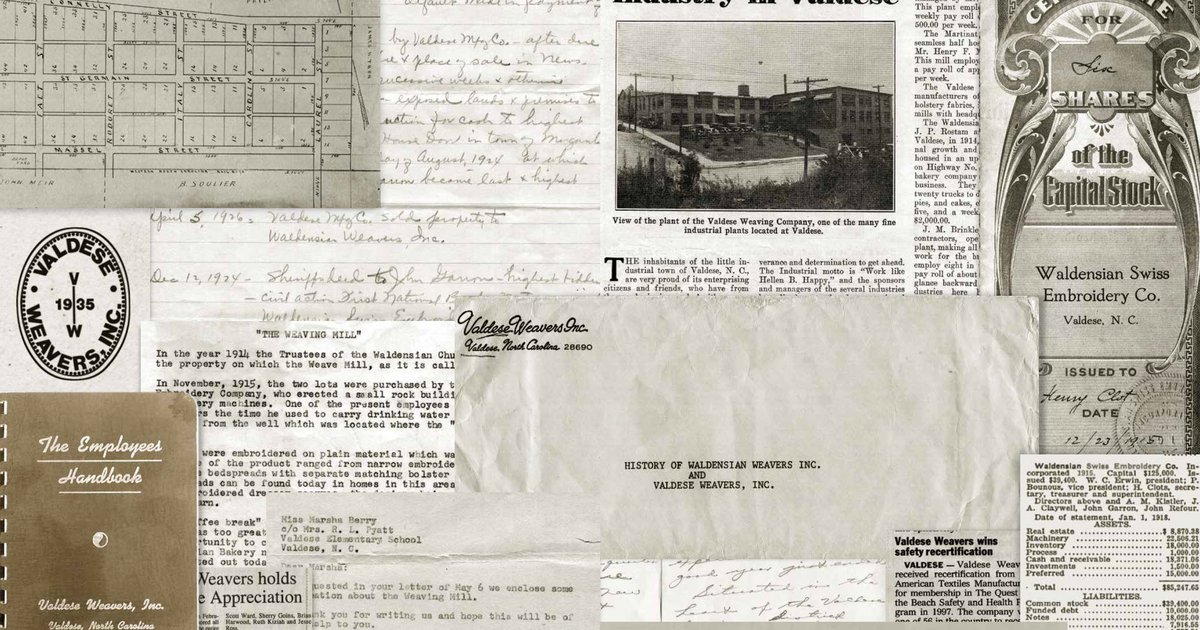 CONNELLY STREET
ST GERMAIN STREET
MASSEL STREET
ITALY ST
CAROLINA ST
LAUREL ST
B. SOULIER
by Valdese Mfg Co. - after due
& place of sale in News-
successive weeks &
exposed lands & premises to
for cash to highest
House Door in town of Morganton
August, 1924 at which
became last & highest
April 5, 1926 = Valdese Mfg Co. sold property to
Waldensian Weavers Inc.
Dec 12, 1924 - Sheriff's deed to John Garrou - highest bidder
- civil action First National Bank
Industry in Valdese
View of the plant of the Valdese Weaving Company, one of the many fine
industrial plants located at Valdese.
THE inhabitants of the little in-
dustrial town of Valdese, N. C.,
are very proud of its enterprising
citizens and friends, who have from
verance and determination to get ahead.
The Industrial motto is "Work like
Hellen B. Happy," and the sponsors
and managers of the several industries
This plant empl
weekly pay roll
500.00 per week.
The Martinat
seamless half ho
Mr. Henry F. M
This mill employ
a pay roll of app
per week.
The Valdese
manufacturers o
holstery fabrics,
mills with headq
The Waldensia
J. P. Rostam a
Valdese, in 1914,
nal growth and
housed in an up
on Highway No.
bakery company
business. They
twenty trucks to d
pies, and cakes, e
five, and a week
$2,000.00.
J. M. Brinkle
contractors, ope
plant, making all
work for the b
employ eight in
pay roll of about
glance backward
dustries here
FOR
Six
SHARES
of the
Capital Stock
Waldensian Swiss
Embroidery Co.
Valdese, N. C.
ISSUED TO
Henry Clot
DATE
12/23/1915
VALDESE
V
1935
W
WEAVERS, INC.
"THE WEAVING MILL"
In the year 1914 the Trustees of the Waldensian Chu
the property on which the Weave Mill, as it is call
In November, 1915, the two lots were purchased by t
Embroidery Company, who erected a small rock buildi
ery machines. One of the present employees
rs the time he used to carry drinking water
from the well which was located where the "
were embroidered on plain material which wa
of the product ranged from narrow embroide
bedspreads with separate matching bolster
ads can be found today in homes in this area
oidered
arn.
ffee break"
as too great
tunity to c
ian Bakery n
ed out toda
Valdese Weavers Inc.
Valdese, North Carolina 28690
HISTORY OF WALDENSIAN WEAVERS INC.
AND
VALDESE WEAVERS, INC.
The Employees
Handbook
Valdese Weavers, Inc.
Valdese, North Carolina
Miss Marsha Berry
c/o Mrs. R. L. Pyatt
Valdese Elementary School
Valdese, N. C.
Dear Marsha:
uested in your letter of May 6 we enclose some
ation about the Weaving Mill.
nk you for writing us and hope this will be of
elp to you.
Weavers holds
e Appreciation
Scott Ward, Sherry Goins, Brian
Harwood, Ruth Kiziah and Jesse
Situated in the
heart of the Valdese
Valdese Weavers wins
safety recertification
VALDESE - Valdese Weav
received recertification from
American Textiles Manufactur
for membership in The Quest
the Beach Safety and Health P
gram in 1997. The company w
one of 56 in the country to rece
Waldensian Swiss Embroidery Co. In-
corporated 1915. Capital $125,000. Is-
sued $39,400. W. C. Erwin, president; P.
Bounous, vice president; H. Clots, secre-
tary, treasurer and superintendent.
Directors above and A. M. Kistler, J.
A. Claywell, John Garron, John Refour.
Date of statement, Jan. 1, 1918.
ASSETS.
Real estate $ 8,870.38
Machinery 22,506.21
Inventory 18,000.00
Process 1,000.00
Cash and receivable 18,371.06
Investments 1,500.00
Preferred 15,000.00
Total $85,247.65
LIABILITIES.
Common stock $39,400.00
Funded debt 10,000.00
Notes 18,025.00
7,916.55